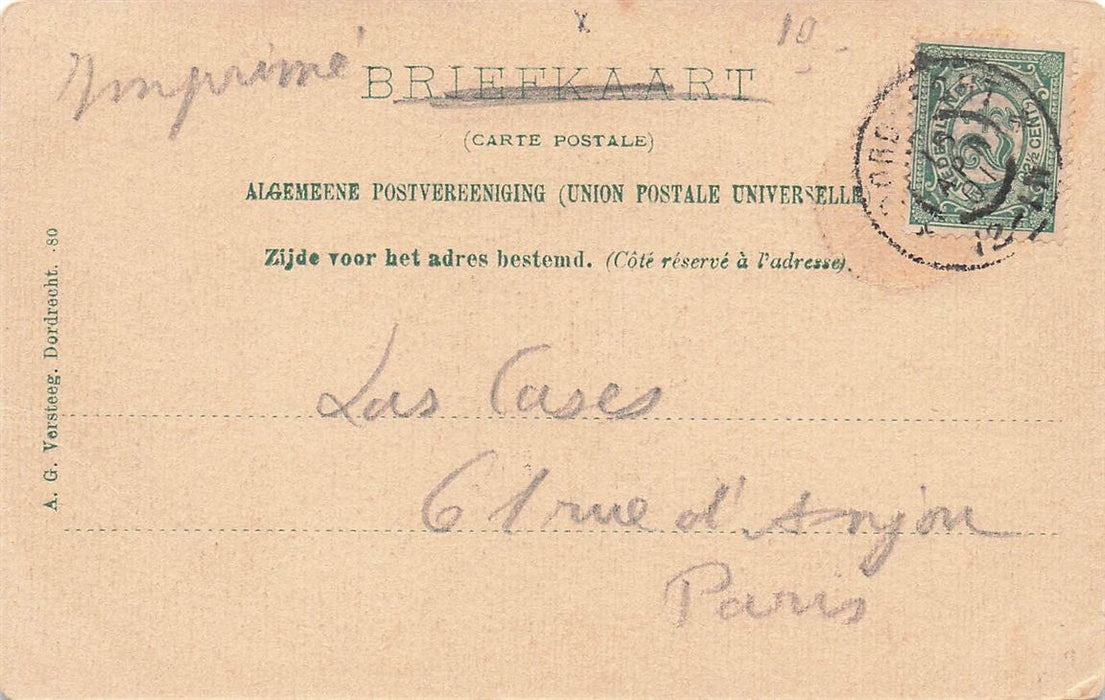 10
Imprimé
BRIEFKAART
(CARTE POSTALE)
ALGEMEENE POSTVEREENIGING (UNION POSTALE UNIVERSELLE
Zijde voor het adres bestemd. (Côté réservé à l'adresse).
NEDERLAND
2½ CENT
AP
01
A. G. Versteeg. Dordrecht. 80
Las Cases
61 rue d'Anjou
Paris